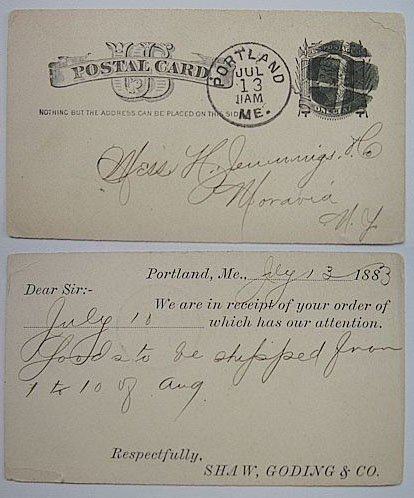 US
POSTAL CARD
PORTLAND
JUL
13
11AM
ME.
NOTHING BUT THE ADDRESS CAN BE PLACED ON THIS SIDE
Mess H. Jennings & Co
Moravia
N.Y.
Portland, Me., July 13 1883
Dear Sir:-
We are in receipt of your order of
July 10 which has our attention.
Goods to be shipped from
1 to 10 of Aug.
Respectfully,
SHAW, GODING & CO.